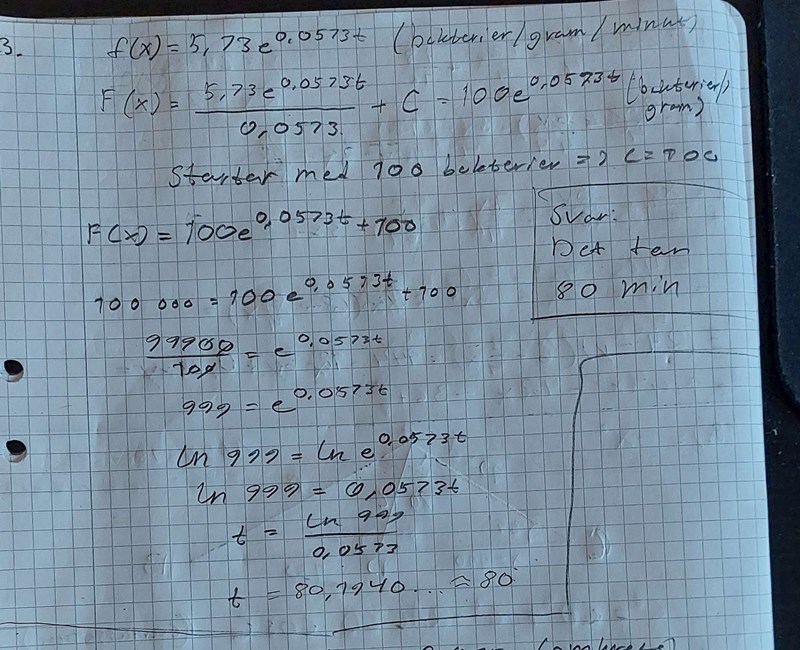 3. f(x) = 5,73e^0,0573t (bakterier/gram/minut)
F(x) = 5,73e^0,0573t / 0,0573 + C = 100e^0,0573t (bakterier/gram)
Startar med 100 bakterier => C = 100
F(x) = 100e^0,0573t + 100
100 000 = 100 e^0,0573t + 100
99900 / 100 = e^0,0573t
999 = e^0,0573t
ln 999 = ln e^0,0573t
ln 999 = 0,0573t
t = ln 999 / 0,0573
t = 80,1940... ≈ 80
Svar:
Det tar
80 min